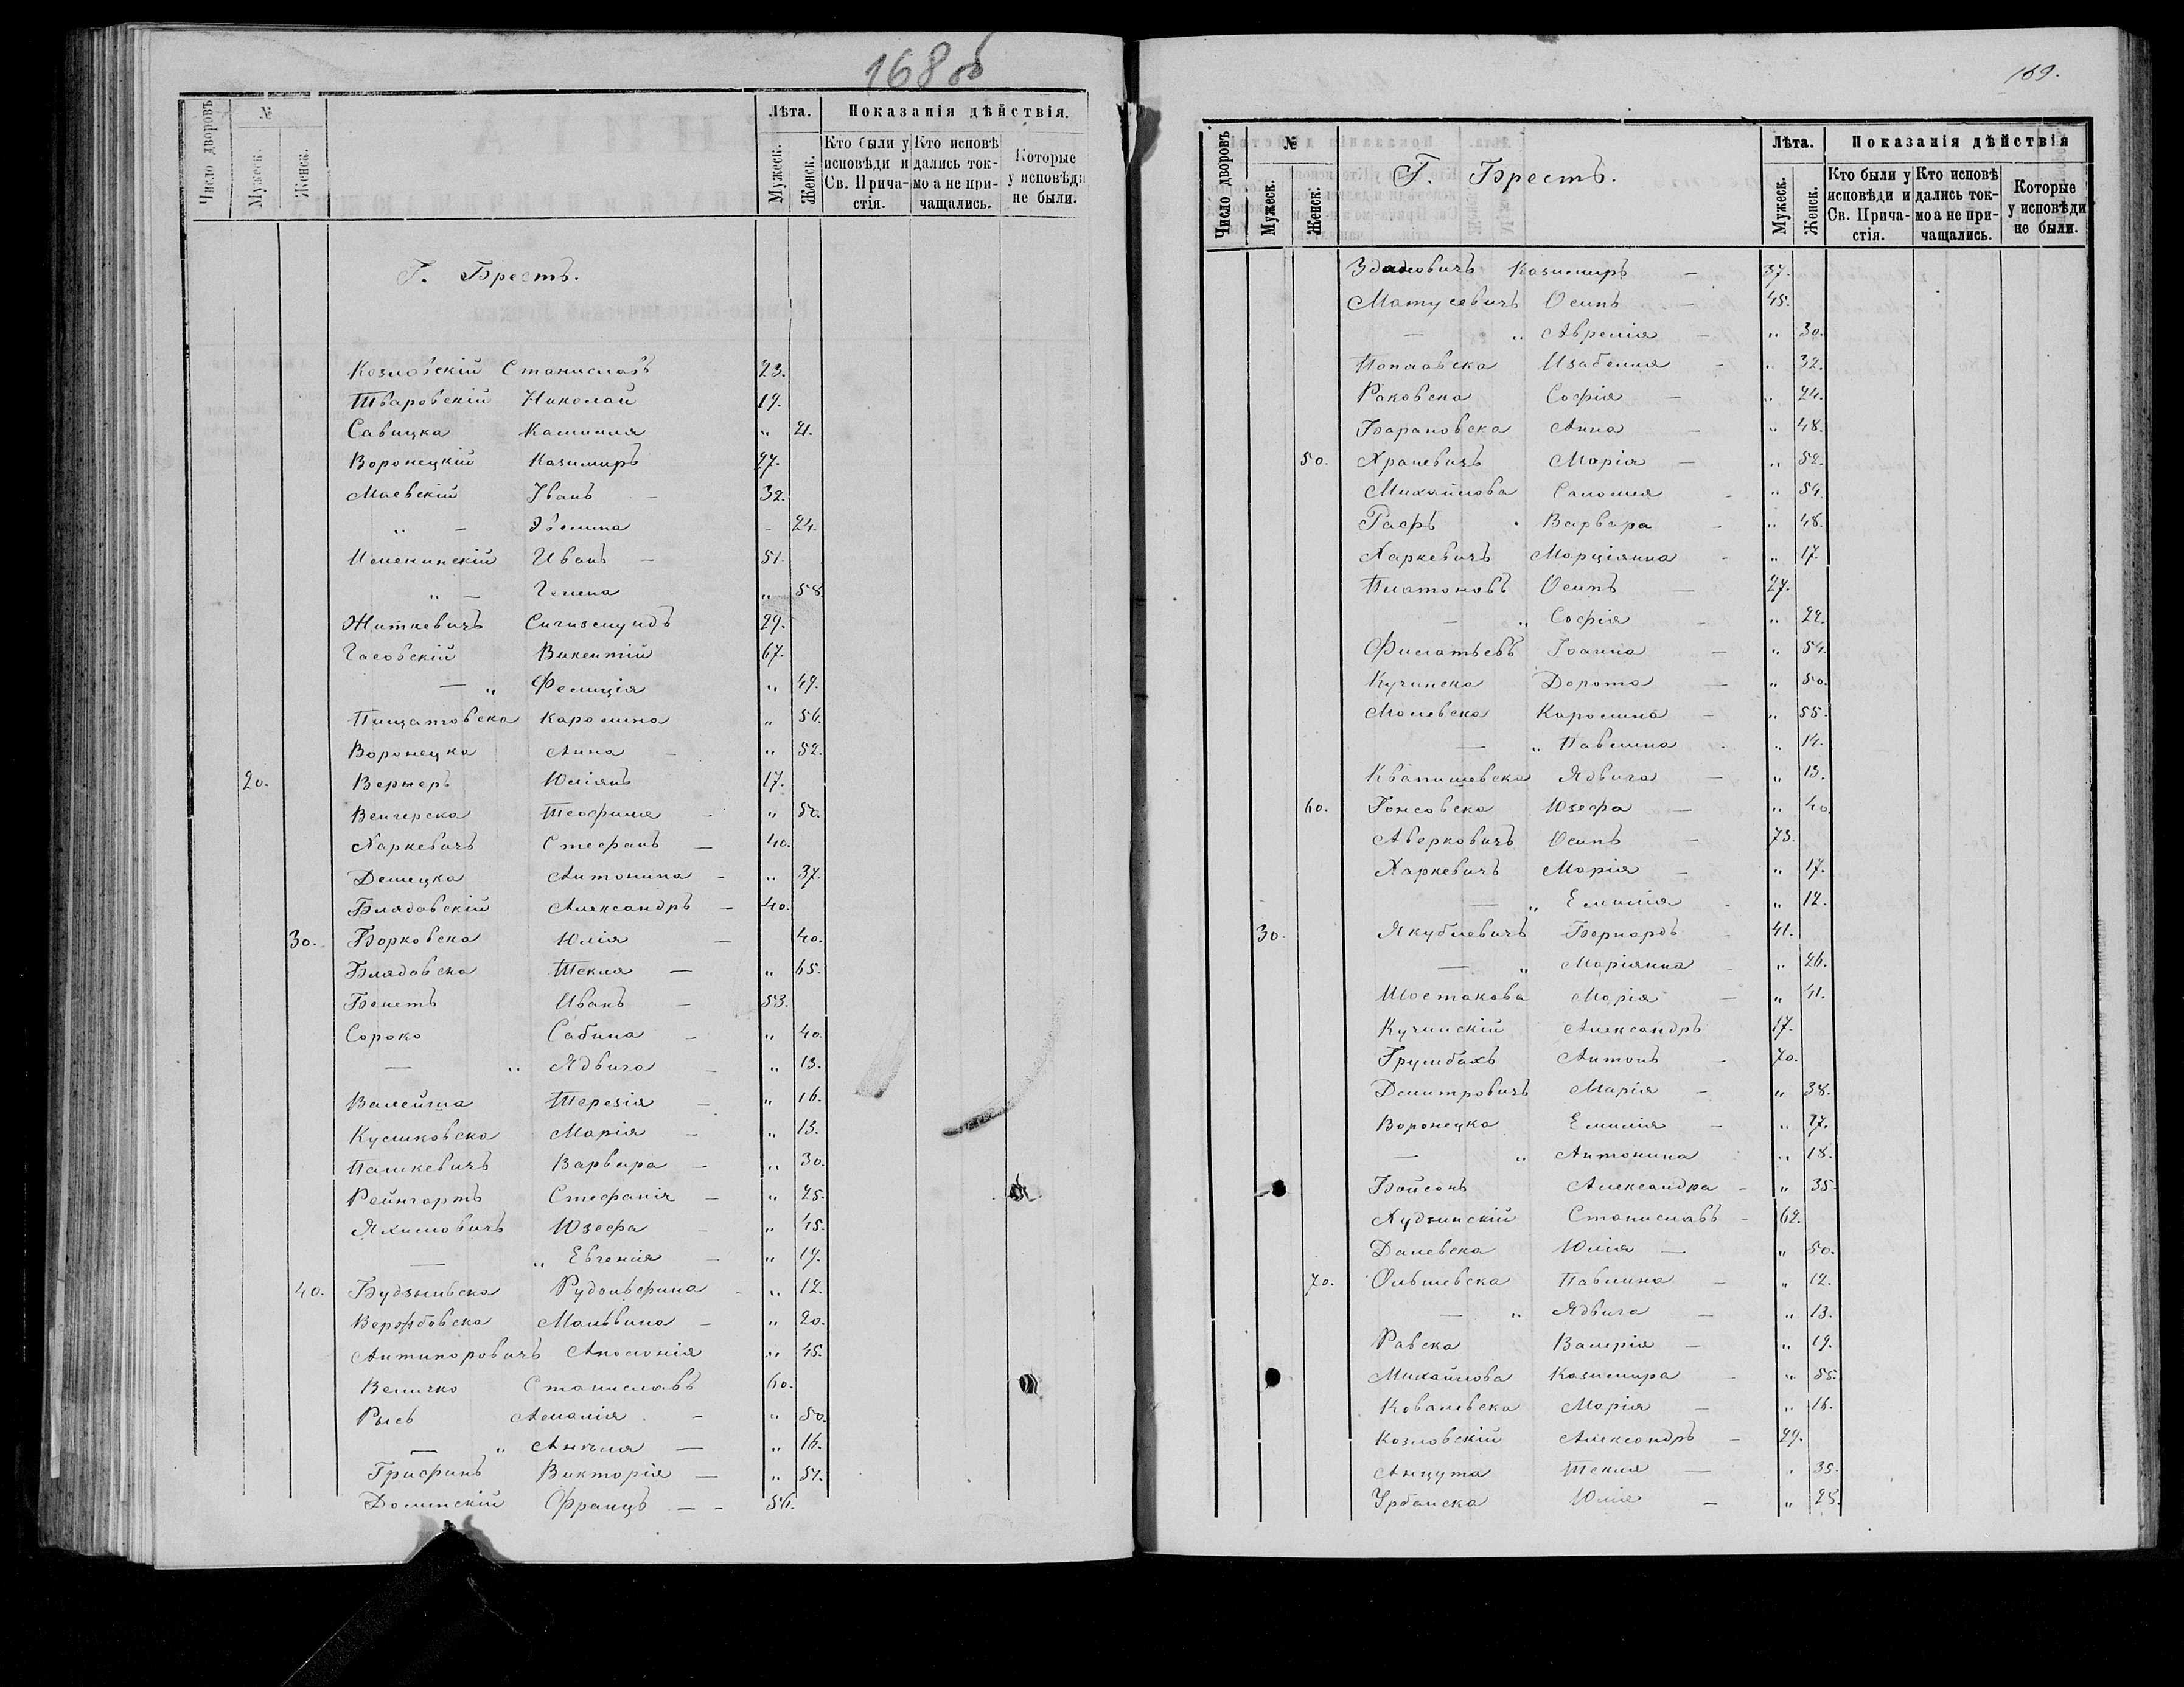 168 об
Число дворовъ
№
Мужеск.
Женск.
Лѣта.
Мужеск.
Женск.
Показанія дѣйствія.
Кто были у исповѣди и Св. Прича-стія.
Кто исповѣ дались ток-мо а не при-чащались.
Которые у исповѣди не были.
Г. Брестъ.
Козловскій Станиславъ 23.
Тваровскій Николай 19.
Савицка Камилля " 21.
Воронецкій Казимиръ 27.
Маевскій Іванъ - 32.
" - Эвелина - 24.
Именинскій Иванъ - 51.
" - Гелена " 58
Житкевичъ Сигизмундъ 29.
Гасовскій Викентій 67.
- " Фелиція " 49.
Пищатовска Каролина " 56.
Воронецка Анна - " 52.
20. Вернеръ Юліянъ 17.
Венгерска Теофиля - " 50.
Харкевичъ Стефанъ - 40.
Демецка Антонина - " 37.
Блядовскій Александръ - 40.
30. Борковска Юлія - 40.
Блядовска Текля - " 65.
Бенетъ Иванъ - 53.
Сороко Сабина - " 40.
- " Ядвига - " 13.
Валейша Терезія - " 16.
Кусмковска Марія - " 13.
Пашкевичъ Варвара - " 30.
Рейнгартъ Стефанія - " 25.
Яхимовичъ Юзефа - " 45.
- " Евгенія - " 19.
40. Будзынвска Рудольфина - " 12.
Мальвина - " 20.
Антипоровичъ Аполонія " 45.
Величко Станиславъ 60.
Рысь Амалія - " 50.
- " Анѣля - " 16.
Грифинъ Викторія - " 57.
Долинскій Францъ - - 56.
169.
Число дворовъ
№
Мужеск.
Женск.
Г. Брестъ.
Лѣта.
Мужеск.
Женск.
Показанія дѣйствія
Кто были у исповѣди и Св. Прича-стія.
Кто исповѣ дались ток-мо а не при-чащались.
Которые у исповѣди не были.
Здановичъ Казимиръ - 37.
Матусевичъ Осипъ - 45.
- " Аврелія - " 30.
Поплавска Изабелля - " 32.
Раковска Софія - " 24.
Барановска Анна - " 48.
50. Храневичъ Марія - " 52.
Михайлова Саломея - " 54.
Рафъ Варвара - " 48.
Харкевичъ Марціянна - " 17.
Платоновъ Осипъ - 27.
- " Софія - " 22.
Филатьевъ Іоанна - " 54.
Кучинска Дорота - " 50.
Малевска Каролина - " 55.
- " Павлина - " 14.
Квапишевска Ядвига - " 13.
60. Гонсовска Юзефа - " 40
Аверковичъ Осипъ - 73.
Харкевичъ Марія - " 17.
- " Емилія - " 12.
30. Якубцевичъ Бернардъ - 41.
- " Маріянна - " 26.
Шостакова Марія - " 41.
Кучинскій Александръ 17.
Грумбахъ Антонъ - 70.
Демитровичъ Марія - " 38.
Воронецка Емилія - " 27.
- " Антонина " 18.
Бойсонъ Александра - " 35.
Худзинскій Станиславъ - 62.
Далевска Юлія - " 50.
70. Ольшевска Павлина - " 12.
- " Ядвига - " 13.
Равска Валерія - " 19.
Михайлова Казимира - " 55.
Ковалевска Марія - " 16.
Козловскій Александръ - 29.
Анцута Текля - " 35.
Урбанска Юлія - " 25.